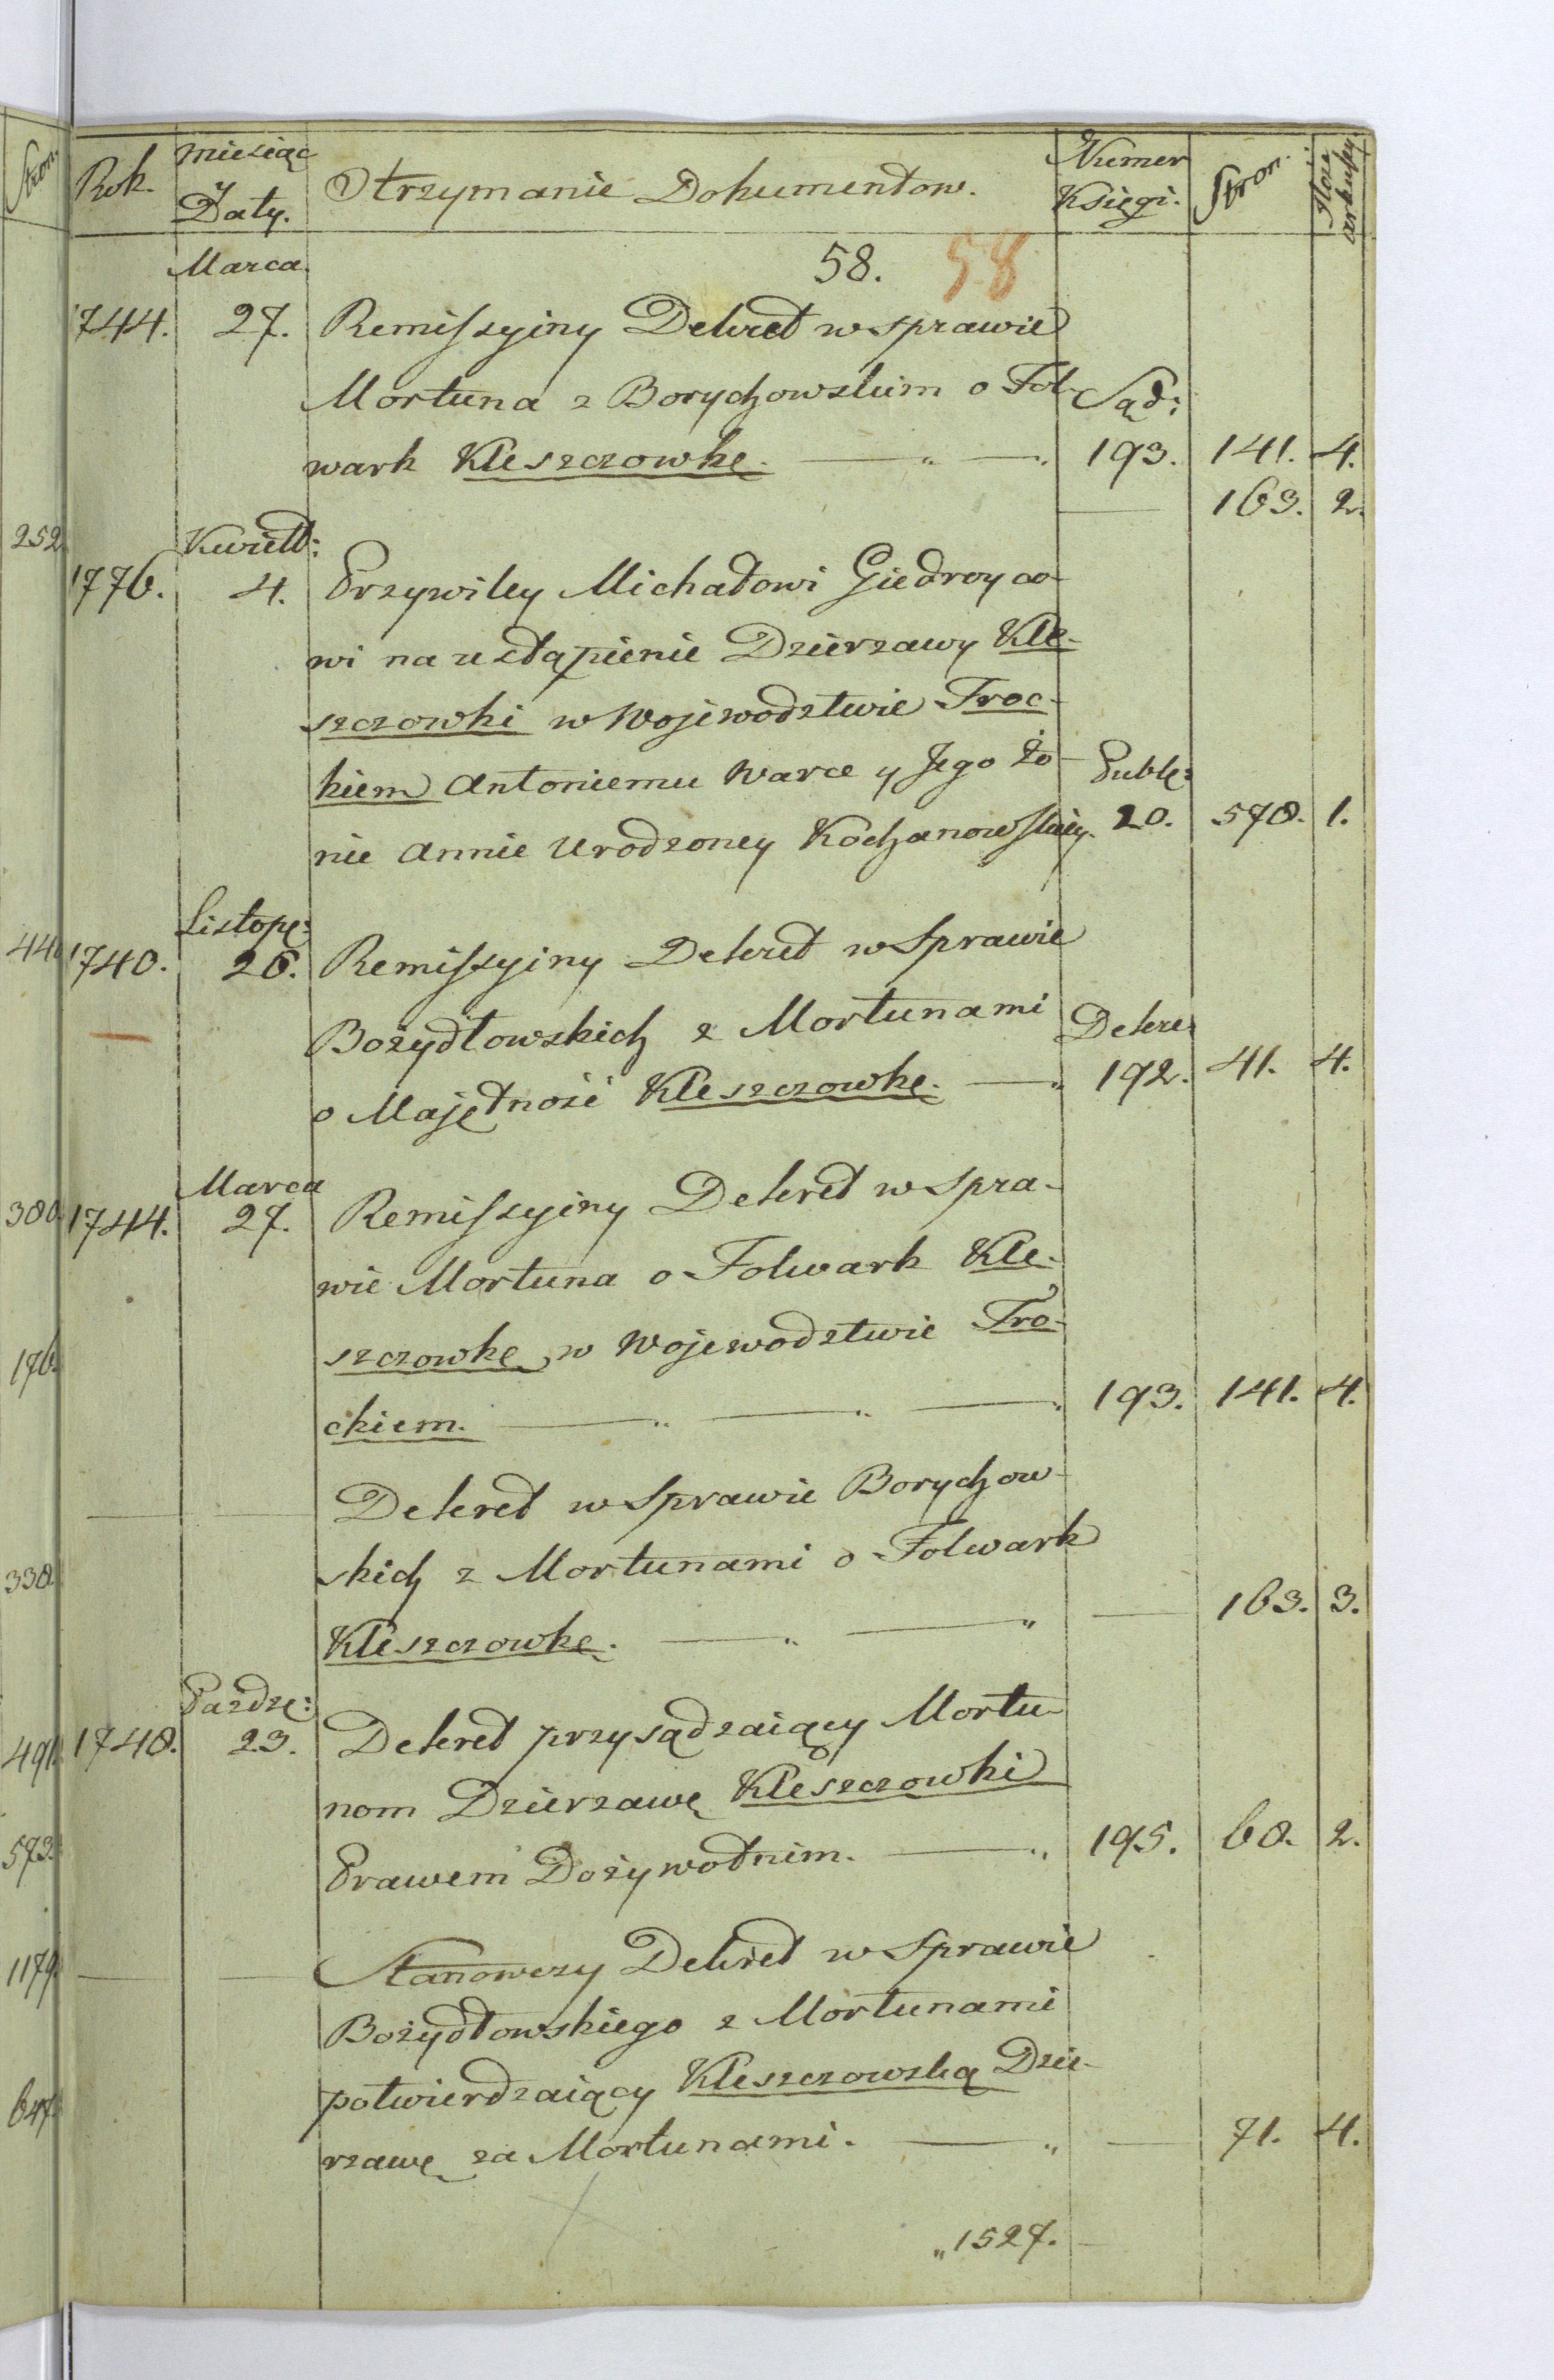 Stron.
Rok. Miesiąc y Daty. Otrzymanie Dokumentow. Numer Księgi. Stron. Ilosć arkuszy.
58. 58
Marca
1744. 27. Remiſsyiny Dekret w sprawie
Mortuna z Borychowskim o Fol- Sąd:
wark Kleszczowkę. 193. 141. 4.
163. 2.
252. Kwiet:
1776. 4. Przywiley Michałowi Giedroyco-
wi na ustąpienie Dzierzawy Kle-
szczowki w Wojewodztwie Troc-
kiem Antoniemu Warce y Jego żo- Publę:
nie Annie Urodzoney Kochanowſkiey. 20. 578. 1.
Listopę:
1740. 26. Remiſsyiny Dekret w Sprawie
Bożydłowskich z Mortunami Dekre:
o Majętność Kleszczowkę. 192. 41. 4.
Marca
380. 1744. 27. Remiſsyiny Dekret w spra-
wie Mortuna o Folwark Kle-
szczowkę w Wojewodztwie Tro-
176.
ckiem. 193. 141. 4.
Dekret w Sprawie Borychow-
skich z Mortunami o Folwark
338.
Kleszczowkę. 163. 3.
Pazdzę:
491. 1748. 23. Dekret przysądzaiący Mortu-
nom Dzierzawę Kleszczowki
573. Prawem Dożywotnim. 195. 68. 2.
1179. Stanowczy Dekret w Sprawie
Bożydłowskiego z Mortunami
potwierdzaiący Kleszczowską Dzie-
647. rzawę za Mortunami. 71. 4.
„1527.